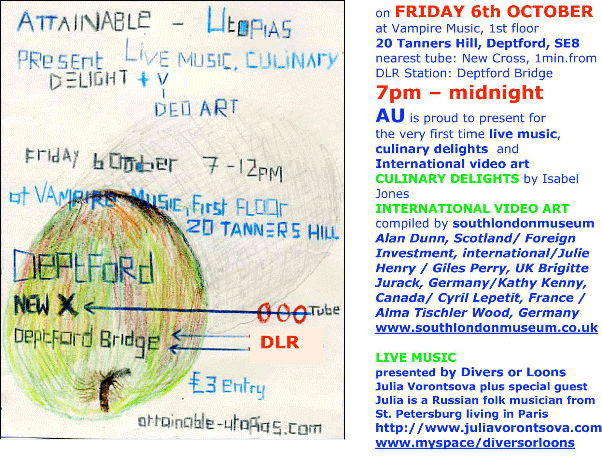 ATTAINABLE - UtoPiAS
PResent Live Music, CULiNARY
DELiGHT + V
i
DEO ART
Friday 6 October 7-12PM
at VAMPiRe Music, First FLOOR
20 TANNERS HiLL
DEPTFORD
NEW X
Tube
Deptford Bridge
DLR
£3 entry
attainable-utopias.com
on FRIDAY 6th OCTOBER
at Vampire Music, 1st floor
20 Tanners Hill, Deptford, SE8
nearest tube: New Cross, 1min.from
DLR Station: Deptford Bridge
7pm – midnight
AU is proud to present for
the very first time live music,
culinary delights and
International video art
CULINARY DELIGHTS by Isabel
Jones
INTERNATIONAL VIDEO ART
compiled by southlondonmuseum
Alan Dunn, Scotland/ Foreign
Investment, international/Julie
Henry / Giles Perry, UK Brigitte
Jurack, Germany/Kathy Kenny,
Canada/ Cyril Lepetit, France /
Alma Tischler Wood, Germany
www.southlondonmuseum.co.uk
LIVE MUSIC
presented by Divers or Loons
Julia Vorontsova plus special guest
Julia is a Russian folk musician from
St. Petersburg living in Paris
http://www.juliavorontsova.com
www.myspace/diversorloons